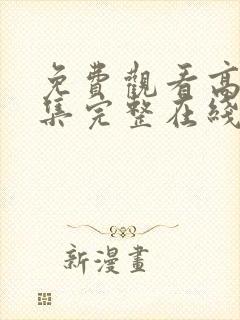 免費觀看高
集完整在綫
新漫畫